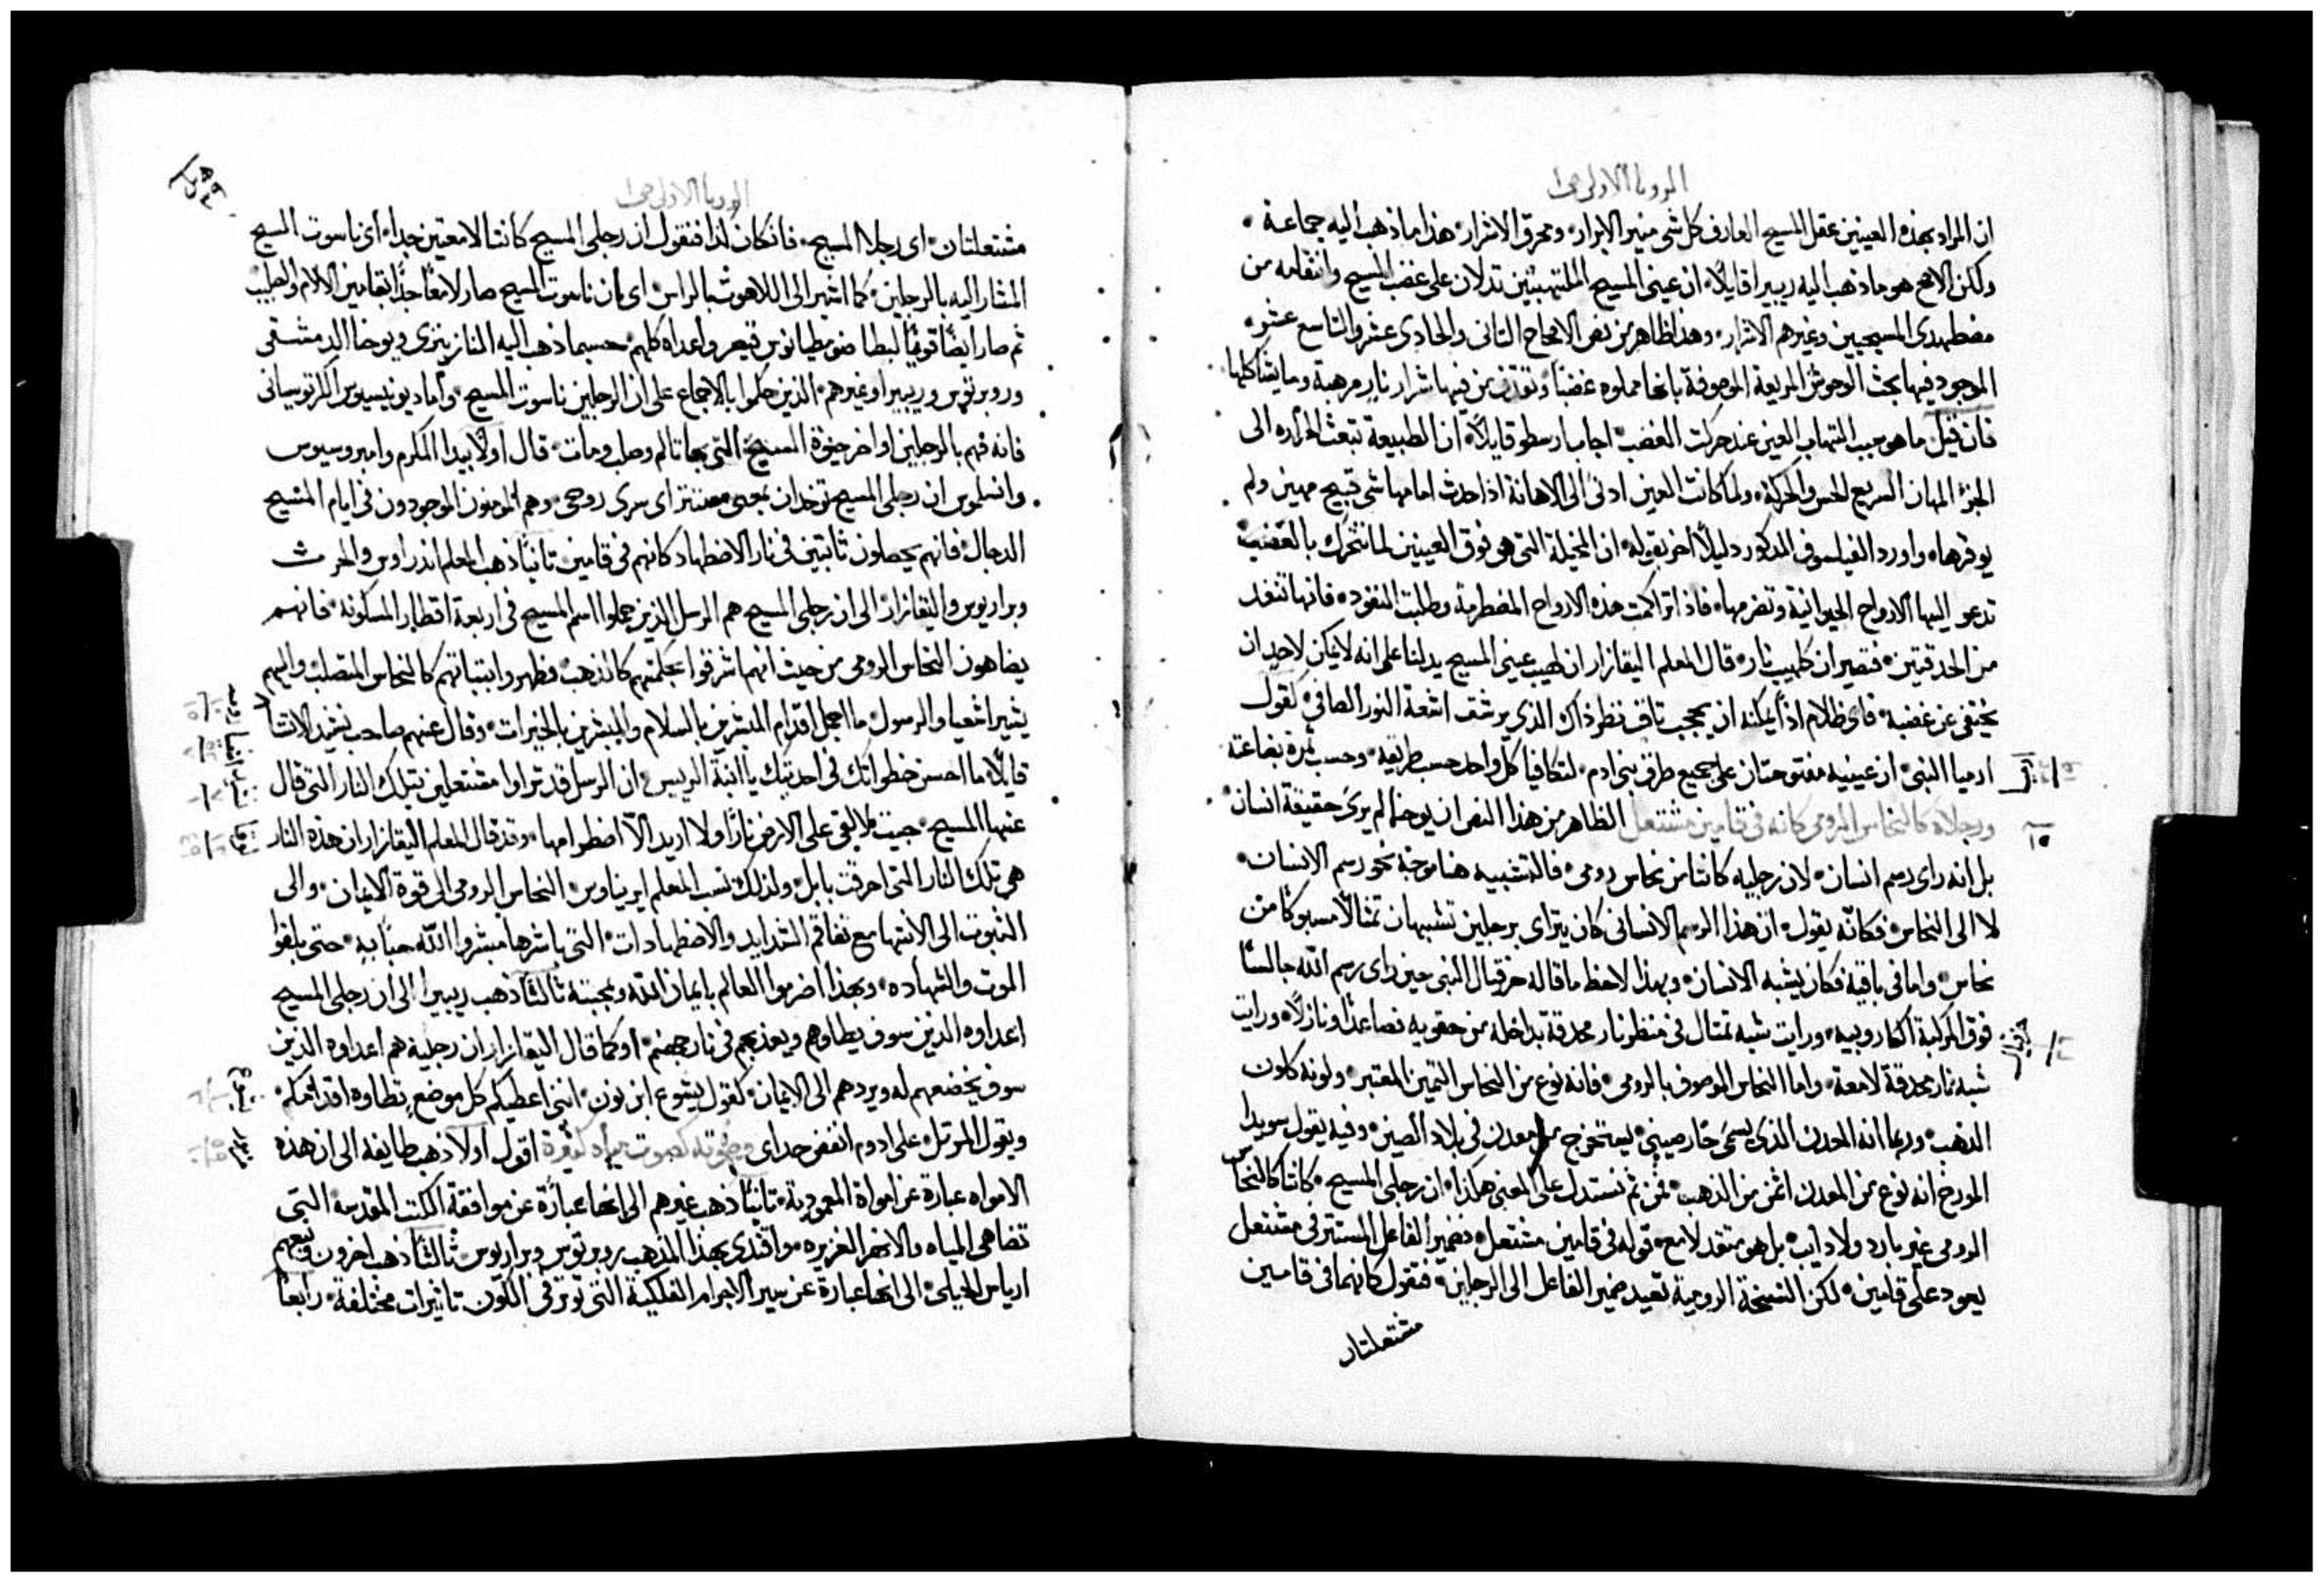 الرويا الاولى ص ا
ان المراد بهذه العينين عقل المسيح العارف كل شي منير الابرار، ومحرق الاشرار، هذا ما ذهب اليه جماعة،
ولكن الاصح هو ما ذهب اليه ريبيرا قايلًا، ان عيني المسيح الملتهبتين تدلان على غضب المسيح وانتقامه من
مضطهدي المسيحيين وغيرهم الاشرار، وهذا ظاهر من نص الاصحاح الثاني والحادي عشر والتاسع عشر،
الموجود فيها بحث الوحوش المريعة الموصوفة بانها مملوه غضبًا وتقذف من فيها شرار نار مرهبة وما يشاكلها،
فان قيل ما هو سبب التهاب العين عند حركت الغضب، اجاب ارسطو قايلًا، ان الطبيعة تبعث الحراره الى
الجزء المهان السريع الحس والحركة، ولما كانت العين ادنى الى الاهانة اذا حدث امامها شي قبيح مهين ولم
يوقرها، واورد الفيلسوف المذكور دليلًا اخر بقوله، ان المخيلة التي هي فوق العينين لما تتحرك بالغضب
تدعو اليها الارواح الحيوانية وتضرمها، فاذا تراكمت هذه الارواح المضطرمة وطلبت النفود، فانها تنفد
من الحدقتين، فتصيران كلهيب نار، قال المعلم اليقازار ان لهيب عيني المسيح يدلنا على انه لا يمكن لاحد ان
يختفي عن غضبه، فاي ظلام اذًا يمكنه ان يحجب تاقف نظر ذاك الذي يرشف اشعة النور الصافي، كقول
ارميا النبي، ان عينيه مفتوحتان على جميع طرق بني ادم، لتكافيا كل واحد حسب طريقه، وحسب ثمرة بضاعته
ارميا
ورجلاه كالنحاس الرومي كانه في قامين مشتعل الظاهر من هذا النص ان يوحنا لم يرى حقيقة انسان،
١٥
بل انه راى رسم انسان، لان رجليه كانتا من نحاس رومي، فالتشبيه هنا موجه نحو رسم الانسان،
لا الى النحاس، فكانّه يقول، ان هذا الرسم الانساني كان يتراى برجلين تشبهان تمثالًا مسبوكًا من
نحاس، واما في باقيه فكان يشبه الانسان، وبهذا لاحظ ما قاله حزقيال النبي حين راى رسم اللّه جالسًا
فوق المركبة الكاروبيه، ورايت شبه تمثال في منظر نار محدقة بداخله من حقويه فصاعدًا ونازلًا، ورايت
حزقيال
شبه نار محدقة لامعة، واما النحاس الموصوف بالرومي، فانه نوع من النحاس الثمين المعتبر، ولونه كلون
الذهب، وربما انه المعدن الذي يسمى خارصيني، يستخرج من معدن في بلاد الصين، وفيه يقول سويدا
المورخ انه نوع من المعدن اثمن من الذهب، فمن ثم نستدل على المعنى هكذا، ان رجلي المسيح، كانتا كالنحاس
الرومي غير بارد ولا دايب، بل هو متقد لامع، قوله في قامين مشتعل، فضمير الفاعل المستتر في مشتعل
يعود على قامين، لكن النسخة الرومية تعيد ضمير الفاعل الى الرجلين، فتقول كانهما في قامين
مشتعلتان
الرويا الاولى ص ا
مشتعلتان، اى رجلا المسيح، فان كان كذا فنقول ان رجلي المسيح كانتا لامعتين جدا، اى ناسوت المسيح
المشار اليه بالرجلين، كما اشير الى اللاهوت بالراس، اى بان ناسوت المسيح صار لامعًا جدًا بقامين الالام والصليب
ثم صار ايضًا قويًا ليطا ضوميطيانوس قيصر واعداه كلهم، حسبما ذهب اليه النازينزي ويوحنا الدمشقي
وروبرتوس وريبيرا وغيرهم، الذين حكموا بالاجماع على ان الرجلين ناسوت المسيح، واما ديونيسيوس الكرتوسياني
فانه فهم بالرجلين اواخر حيوة المسيح، التي بها تالم وصلب ومات، قال اولًا بيدا المكرم وامبروسيوس
وانسلموس ان رجلي المسيح توخدان بمعنى معنتز اى سرى روحي، وهم المومنون الموجودون في ايام المسيح
الدجال، فانهم يحصلون ثابتين في نار الاضطهاد كانهم في قامين، ثانيًا ذهب المعلم اندراوس والحرث
وبراريوس واليقازار، الى ان رجلي المسيح هم الرسل الذين حملوا اسم المسيح في اربعة اقطار المسكونه، فانهم
يضاهون النحاس الرومي من حيث انهم اشرقوا بحكمتهم كالذهب، وظهروا بثباتهم كالنحاس المتصلب، واليهم
يشير اشعيا والرسول، ما اجمل اقدام المبشرين بالسلام والمبشرين بالخيرات، وقال عنهم صاحب نشيد الانشا
قايلًا، ما احسن خطواتك في احديتك يا ابنة الريس، ان الرسل قد تراوا مشتعلين بتلك النار التي قال
عنها المسيح، جيت لالقي على الارض نارًا ولا اريد الّا اضطرامها، وقد قال المعلم اليقازار ان هذه النار
هي تلك النار التي احرقت بابل، ولذلك نسب المعلم ايريناوس، النحاس الرومي الى قوة الايمان، والى
الثبوت الى الانتها مع تفاقم الشدايد والاضطهادات، التي باشرها مبشروا اللّه حبًا به، حتى بلغوا
الموت والشهاده، وبهذا اضرموا العالم بايمان اللّه ومحبته، ثالثًا ذهب ريبيرا الى ان رجلي المسيح
اعداوه الذين سوف يطاوهم ويعذبهم في نار جهنم، او كما قال اليقازار ان رجليه هم اعداوه الذين
سوف يخضعهم له ويردهم الى الايمان، كقول يشوع ابن نون، انني اعطيكم كل موضع تطاوه اقدامكم،
يشوع
ويقول المرتل، على ادوم انفض حداى وصوته كصوت مياه كثيرة اقول اولًا ذهب طايفه الى ان هذه
الامواه عبارة عن امواة المعمودية، ثانيًا ذهب غيرهم الى انها عبارة عن موافقة الكتب المقدسه، التي
تضاهي المياه والانهر الغزيره، واقتدى بهذا المذهب روبرتوس وبراريوس، ثالثًا ذهب اخرون وتبعهم
ارياس الجبلي، الى انها عبارة عن سير الاجرام الفلكية التي توثر في الكون تاثيرات مختلفة، رابعًا